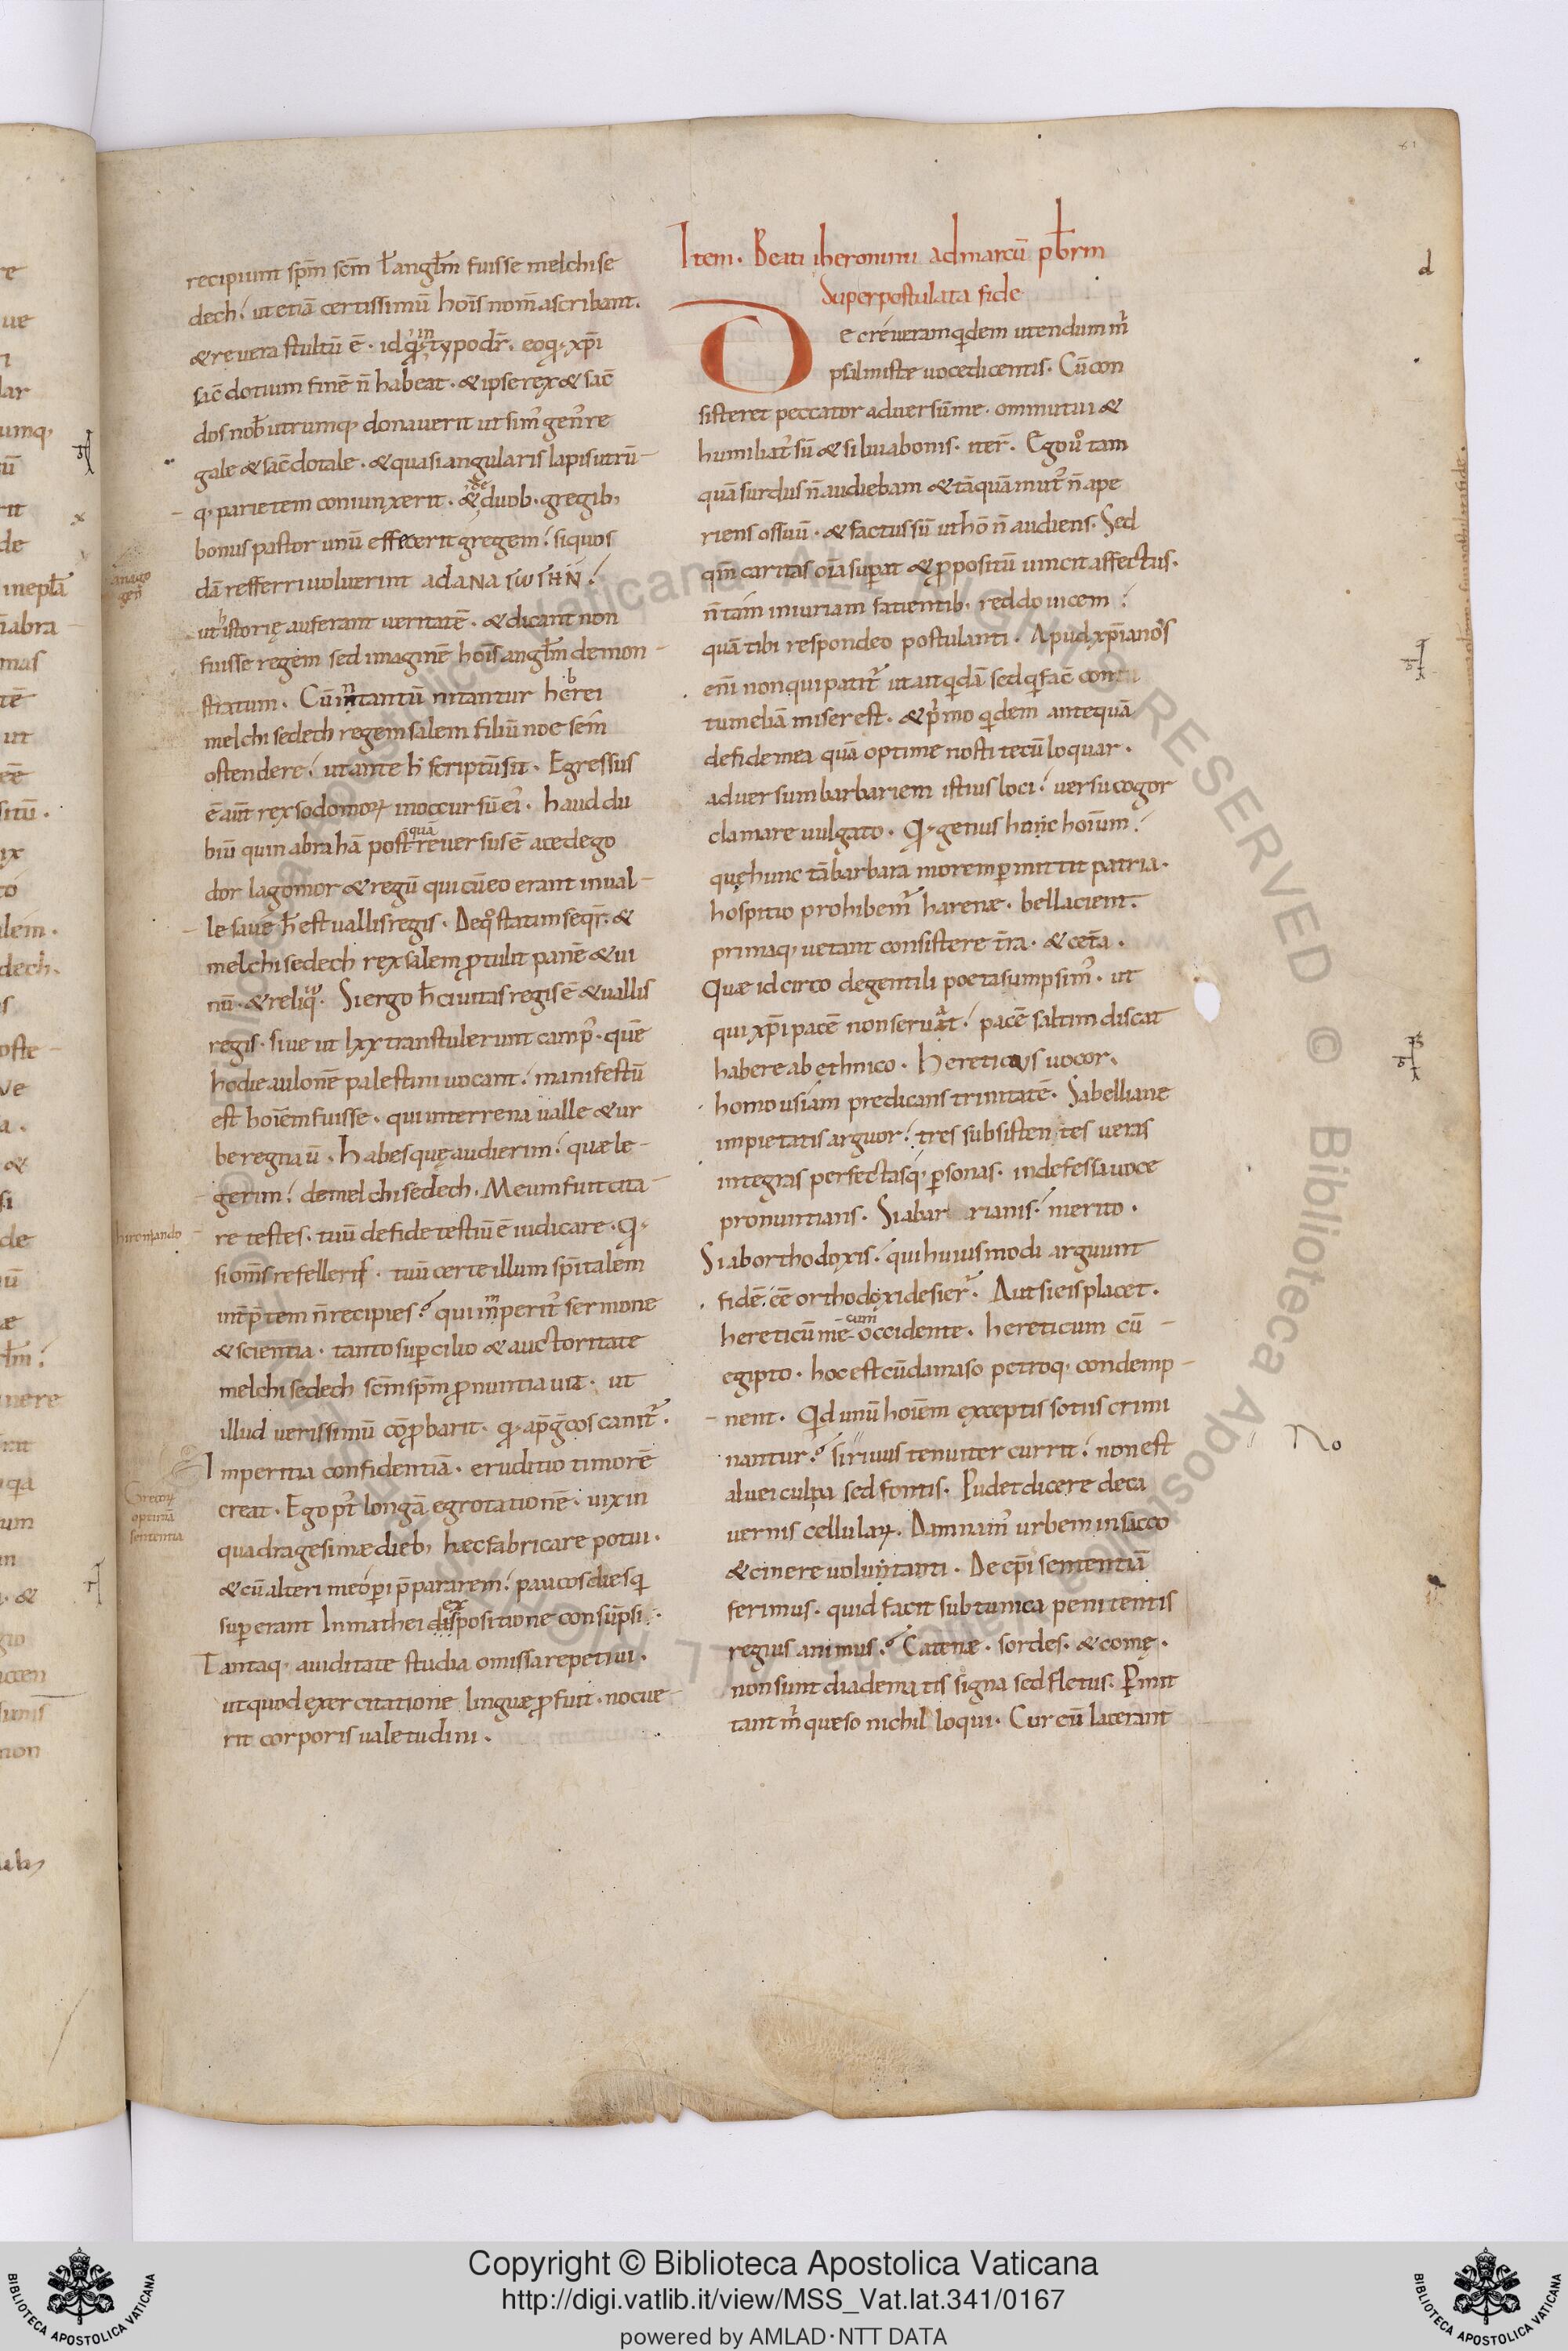 recipiunt sp̅m sc̅m ł angl̅m fuisse melchise
dech. ut etiā certissimū hoīs nom̅ ascribant.
& re vera stultū ē. id q̇ in typo dr̅. eo q xp̅i
sac̅dotium finē n̅ habeat. & ipse rex & sac̅
dos nob̅ utrumq; donaverit ut sim᾽ gen᾽ re
gale & sac̅dotale. & quasi angularis lapis utrū
q; parietem coniunxerit. & de duob. gregib;
bonus pastor unū effecerit gregem. si quos
dā refferri voluerint ad ANAΓωΓHN.
ut istorię auferant veritatē. & dicant non
fuisse regem sed imaginē hoīs angl̅m demon
stratum. Cū in tantū nitantur hebrei
melchisedech regem salem filiū noe sem
ostendere. ut ante h̅ scriptū sit. Egressus
ē aut̅ rex sodomoꝝ in occursū ei᾽. haud du
biū quin abrahā postquā reversus ē a cede go
dor lagomor & regū qui cū eo erant in val
le save h̅ est vallis regis. De q̊ statim seqr̅. &
melchisedech rex salem ꝓtulit panē & vi
nū. & reliq. Si ergo h̅ civitas regis ē & vallis
regis. sive ut lxx transtulerunt camp᾽. quē
hodie aulonē palestini vocant. manifestū
est hoīem fuisse. qui in terrena valle & ur
be regnavī. Habes quę audierim. quæ le
gerim. de melchisedech. Meum fuit cita
re testes. tuū de fide testiū ē iudicare. Q
si om̅s refelleris. tuū certe illum sp̅italem
int̅p̅tem n̅ recipies. qui imperit᾽ sermone
& scientia. tanto sup̱cilio & auctoritate
melchisedech sc̅m sp̅m ꝓnuntiavit. ut
illud verissimū cōꝓbarit. q ap̅ g̅cos canit᾽.
Imperitia confidentiā. eruditio timorē
creat. Ego p᾽t longā egrotationē. vix in
quadragesimæ dieb; hæc fabricare potui.
& cū alteri me op̱i p̅pararem. paucos dies q
sup̱erant In mathei dispositione consūpsi.
Tantaq; aviditate studia omissa repetivi.
ut quod exercitatione linguæ ꝓfuit. nocue
rit corporis valetudini.
anago
gen̅
hironiando
Grecoꝝ
optima
sententia
Item. Beati iheronimi ad marcū pb̅rm
Super postulata fide
Decreveram q̇dem utendum m᾽
psalmiste voce dicentis. Cū con
sisteret peccator adversū me. ommutui &
humiliat᾽ sū & silui a bonis. iter̅. Ego v᾽ tam
quā surdus n̅ audiebam & tāquā mut᾽ n̅ ape
riens os suū. & factus sū ut hō n̅ audiens. Sed
qm̅ caritas oīa sup̱at & ꝓpositū vincit affectus.
n̅ tam iniuriam fatientib; reddo vicem.
quā tibi respondeo postulanti. Apud xp̅ianos
eni̅ non qui patit᾽ ut ait q̇dā sed q̇ fac̅ contu
tumeliā miser est. & p᾽mo q̇dem antequā
de fide mea quā optime nosti tecū loquar.
adversum barbariem istius loci. versu cogor
clamare vulgato. Q genus hunc hoīum.
quę hunc tā barbara morem p̱mittit patria.
hospitio prohibem᾽ harenæ. bella cient.
primaq; vetant consistere t̅ra. & cet̅a.
Quæ idcirco de gentili poeta sumpsim᾽. ut
qui xp̅i pacē non servat. pacē saltim discat
habere ab ethnico. Hereticus vocor.
homousiam predicans trinitatē. Sabelliane
impietatis arguor. tres subsistentes veras
integras perfectasq; p̱sonas. indefessa voce
pronuntians. Si ab ar rianis. merito.
Si ab orthodoxis. qui huiusmodi arguunt
fidē. ēē orthodoxi desier᾽. Aut si eis placet.
hereticū me cum occidente. hereticum cū
egipto. hoc est cū damaso petroq; condemp
nent. Qid unū hoīem exceptis sotiis crimi
nantur. si rivus tenuiter currit. non est
alvei culpa sed fontis. Pudet dicere de ca
vernis cellulaꝝ. Damnam᾽ urbem in sacco
& cinere voluntanti. De ep̅i sententiā
ferimus. quid facit sub tunica penitentis
regius animus. Catenæ. sordes. & comę.
non sunt diadematis signa sed fletus. P̱mit
tant m᾽ queso nichil loqui. Cur eū lacerant
d
No
Copyright © Biblioteca Apostolica Vaticana
http://digi.vatlib.it/view/MSS_Vat.lat.341/0167
powered by AMLAD·NTT DATA